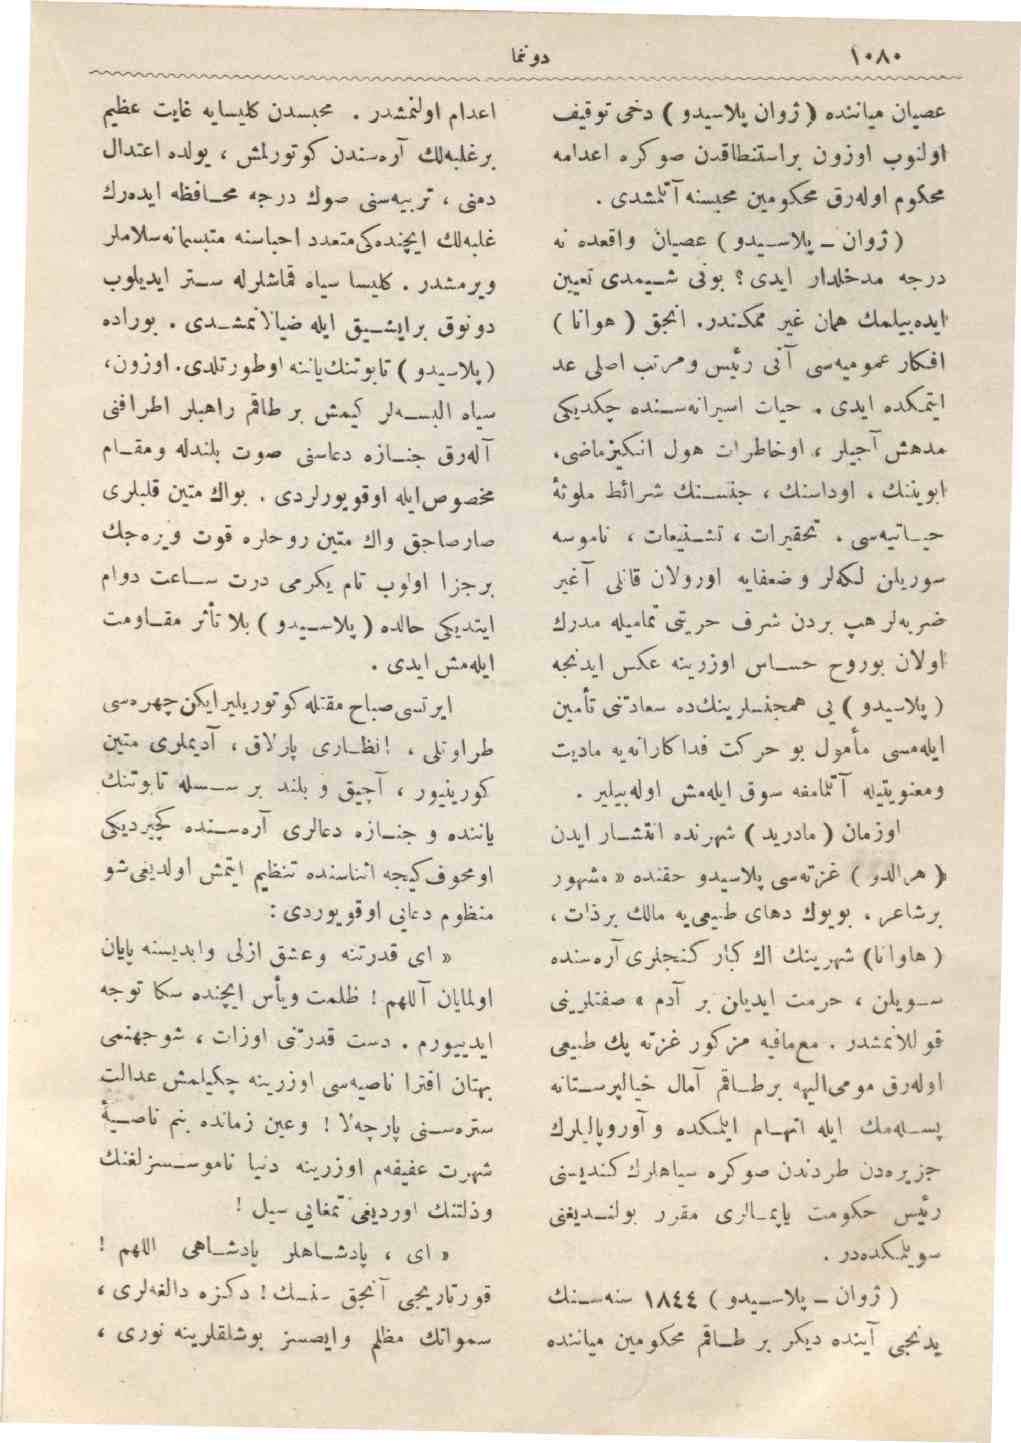 ١٠٨٠
دونما
عصیان میاننده ( ژوان پلاسیدو ) دخی توقیف
اولنوب اوزون بر استنطاقدن صوكره اعدامه
محكوم اوله‌رق محكومین محبسنه آتلمشدی .
( ژوان ـ پلاسیدو ) عصیان واقعده نه
درجه مدخلدار ایدی ؟ بونی شیمدی تعیین
ایده‌بیلمك همان غیر ممكندر. انجق ( هوانا )
افكار عمومیه‌سی آنی رئیس ومرتب اصلی عد
ایتمكده ایدی . حیات اسیرانه‌سنده چكدیكی
مدهش آجیلر ، اوخاطرات هول انكیز ماضی،
ابویننك ، اوداسنك ، جنسنك شرائط ملوثۀ
حیاتیه‌سی ، تحقیرات ، تشنیعات ، ناموسه
سوریلن لكه‌لر و ضعفایه اورولان قانلی آغیر
ضربه‌لر هپ بردن شرف حریتی تمامیله مدرك
اولان بوروح حساس اوزرینه عكس ایدنجه
( پلاسیدو ) یی همجنسلرینك‌ده سعادتنی تأمین
ایله‌مسی مأمول بو حركت فداكارانه‌یه مادیت
ومعنویتیله آتلمامغه سوق ایله‌مش اوله‌بیلیر .
اوزمان ( مادرید ) شهرنده انتشار ایدن
( هرالدو ) غزته‌سی پلاسیدو حقنده « مشهور
برشاعر ، بویوك دهای طبیعی‌یه مالك برذات ،
( هاوانا ) شهرینك اك كبار كنجلری آره‌سنده
سویلن ، حرمت ایدیلن بر آدم » صفتلرینی
قوللانمشدر . مع‌مافیه مزكور غزته پك طبیعی
اوله‌رق مومی‌الیهه برطاقم آمال خیالپرستانه
بسله‌مك ایله اتهام ایتمكده و آوروپالیلرك
جزیره‌دن طردندن صوكره سیاهلرك كندیسنی
رئیس حكومت یاپمه‌لری مقرر بولندیغنی
سویلمكده‌در .
( ژوان ـ پلاسیدو ) ١٨٤٤ سنه‌سنك
یدنجی آینده دیكر بر طاقم محكومین میاننده
اعدام اولنمشدر . محبسدن كلیسایه غایت عظیم
برغلبه‌لك آره‌سندن كوتورلمش ، یولده اعتدال
دمنی ، تربیه‌سنی صوك درجه محافظه ایده‌رك
غلبه‌لك ایچنده‌كی متعدد احباسنه متبسمانه سلاملر
ویرمشدر . كلیسا سیاه قماشلرله ستر ایدیلوب
دونوق برایشیق ایله ضیالانمشدی . بوراده
( پلاسیدو ) تابوتنك یاننه اوطورتلدی. اوزون،
سیاه البسه‌لر كیمش بر طاقم راهبلر اطرافنی
آله‌رق جنازه دعاسنی صوت بلندله ومقام
مخصوص ایله اوقویورلردی . بواك متین قلبلری
صارصاجق واك متین روحلره قوت ویره‌جك
برجزا اولوب تام یكرمی درت ساعت دوام
ایتدیكی حالده ( پلاسیدو ) بلا تأثر مقاومت
ایله‌مش ایدی .
ایرتسی صباح مقتله كوتوریلیر ایكن چهره‌سی
طراوتلی ، انظاری پارلاق ، آدیملری متین
كورینیور ، آچیق و بلند بر سسله تابوتنك
یاننده و جنازه دعالری آره‌سنده كچیردیكی
اومخوف كیجه اثناسنده تنظیم ایتمش اولدیغی شو
منظوم دعایی اوقویوردی :
« ای قدرتنه وعشق ازلی وابدیسنه پایان
اولمایان آللهم ! ظلمت ویأس ایچنده سكا توجه
ایدییورم . دست قدرتنی اوزات ، شو جهنمی
بهتان افترا ناصیه‌سی اوزرینه چكیلمش عدالت
ستره‌سنی پارچه‌لا ! وعین زمانده بنم ناصیۀ
شهرت عفیفه‌م اوزرینه دنیا ناموسسزلغنك
وذلتنك اوردیغی تمغایی سیل !
« ای ، پادشاهلر پادشاهی اللهم !
قورتاریجی آنجق سنسك ! دكزه دالغه‌لری ،
سمواتك مظلم وایصسز بوشلقلرینه نوری ،